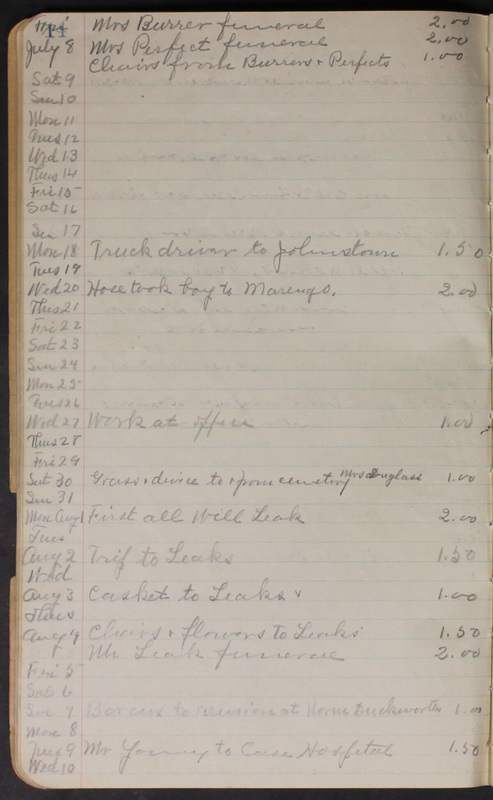 14
Fri Mrs Burrer funeral 2.00
July 8 Mrs Perfect funeral 2.00
Chairs from Burrers + Perfects 1.00
Sat 9
Sun 10
Mon 11
Tues 12
Wed 13
Thus 14
Fri 15
Sat 16
Su 17
Mon 18 Truck driver to Johnstown 1.50
Tues 19
Wed 20 took boy to Marengo. 2.00
Thus 21
Fri 22
Sat 23
Sun 24
Mon 25
Tues 26
Wed 27 Work at office 1.00
Thus 28
Fri 29
Sat 30 Grass + device to + from cemetery Mrs Douglass 1.00
Sun 31
Mon Aug 1 First call Will Leak 2.00
Tues
Aug 2 Trip to Leaks 1.50
Wed
Aug 3 Casket to Leaks 1.00
Thus
Aug 4 Chairs + flowers to Leaks 1.50
Mr Leak funeral 2.00
Fri 5
Sat 6
Sun 7 to reunion at Duckworths 1.00
Mon 8
Tues 9 Mr Young to Case Hospital 1.50
Wed 10